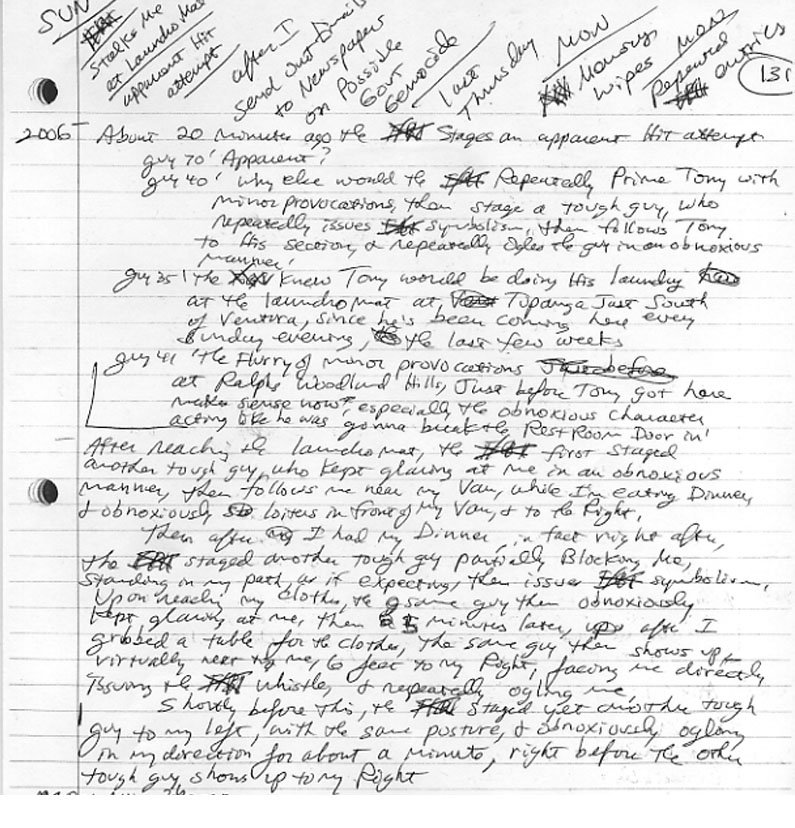 SUN
Stalks me
at laundromat
apparent Hit
attempt
after I
send out Emails
to Newspapers
on Possible
Govt
Genocide
Last
Thursday
MON
Memory
wipes
MON
Repeated
entries
131
2006- About 20 minutes ago the Stages an apparent Hit attempt
guy 70 'Apparent?
guy 40 'why else would the Repeatedly Prime Tony with
minor provocations, then stage a tough guy, who
repeatedly issues symbolism, then follows Tony
to His section, & repeatedly Ogles the guy in an obnoxious
manner'
guy 35 'the Knew Tony would be doing His laundry
at the laundromat at, Topanga Just South
of Ventura, since he's been coming here every
Sunday evening, the last few weeks
guy 41 'The Flurry of minor provocations
at Ralphs Woodland Hills, Just before Tony got here
make sense now", especially the obnoxious character
acting like he was gonna break the Rest Room Door in'
After reaching the laundromat, the first staged
another tough guy, who kept glaring at me in an obnoxious
manner, then follows me near my Van, while I'm eating Dinner,
& obnoxiously loiters in front of my Van, & to the Right.
Then after I had my Dinner, in fact right after,
the staged another tough guy partially Blocking Me,
standing in my path, as if expecting, then issues symbolism.
Upon reaching my clothes, the same guy then obnoxiously
kept glaring at me, then 5 minutes later, after I
grabbed a table for the clothes, the same guy then shows up
virtually near me, 6 feet to my Right, facing me directly
Issuing the whistle, & repeatedly ogling me
Shortly before this, the staged yet another tough
guy to my left, with the same posture, & obnoxiously ogling
in my direction for about a minute, right before the other
tough guy shows up to my Right